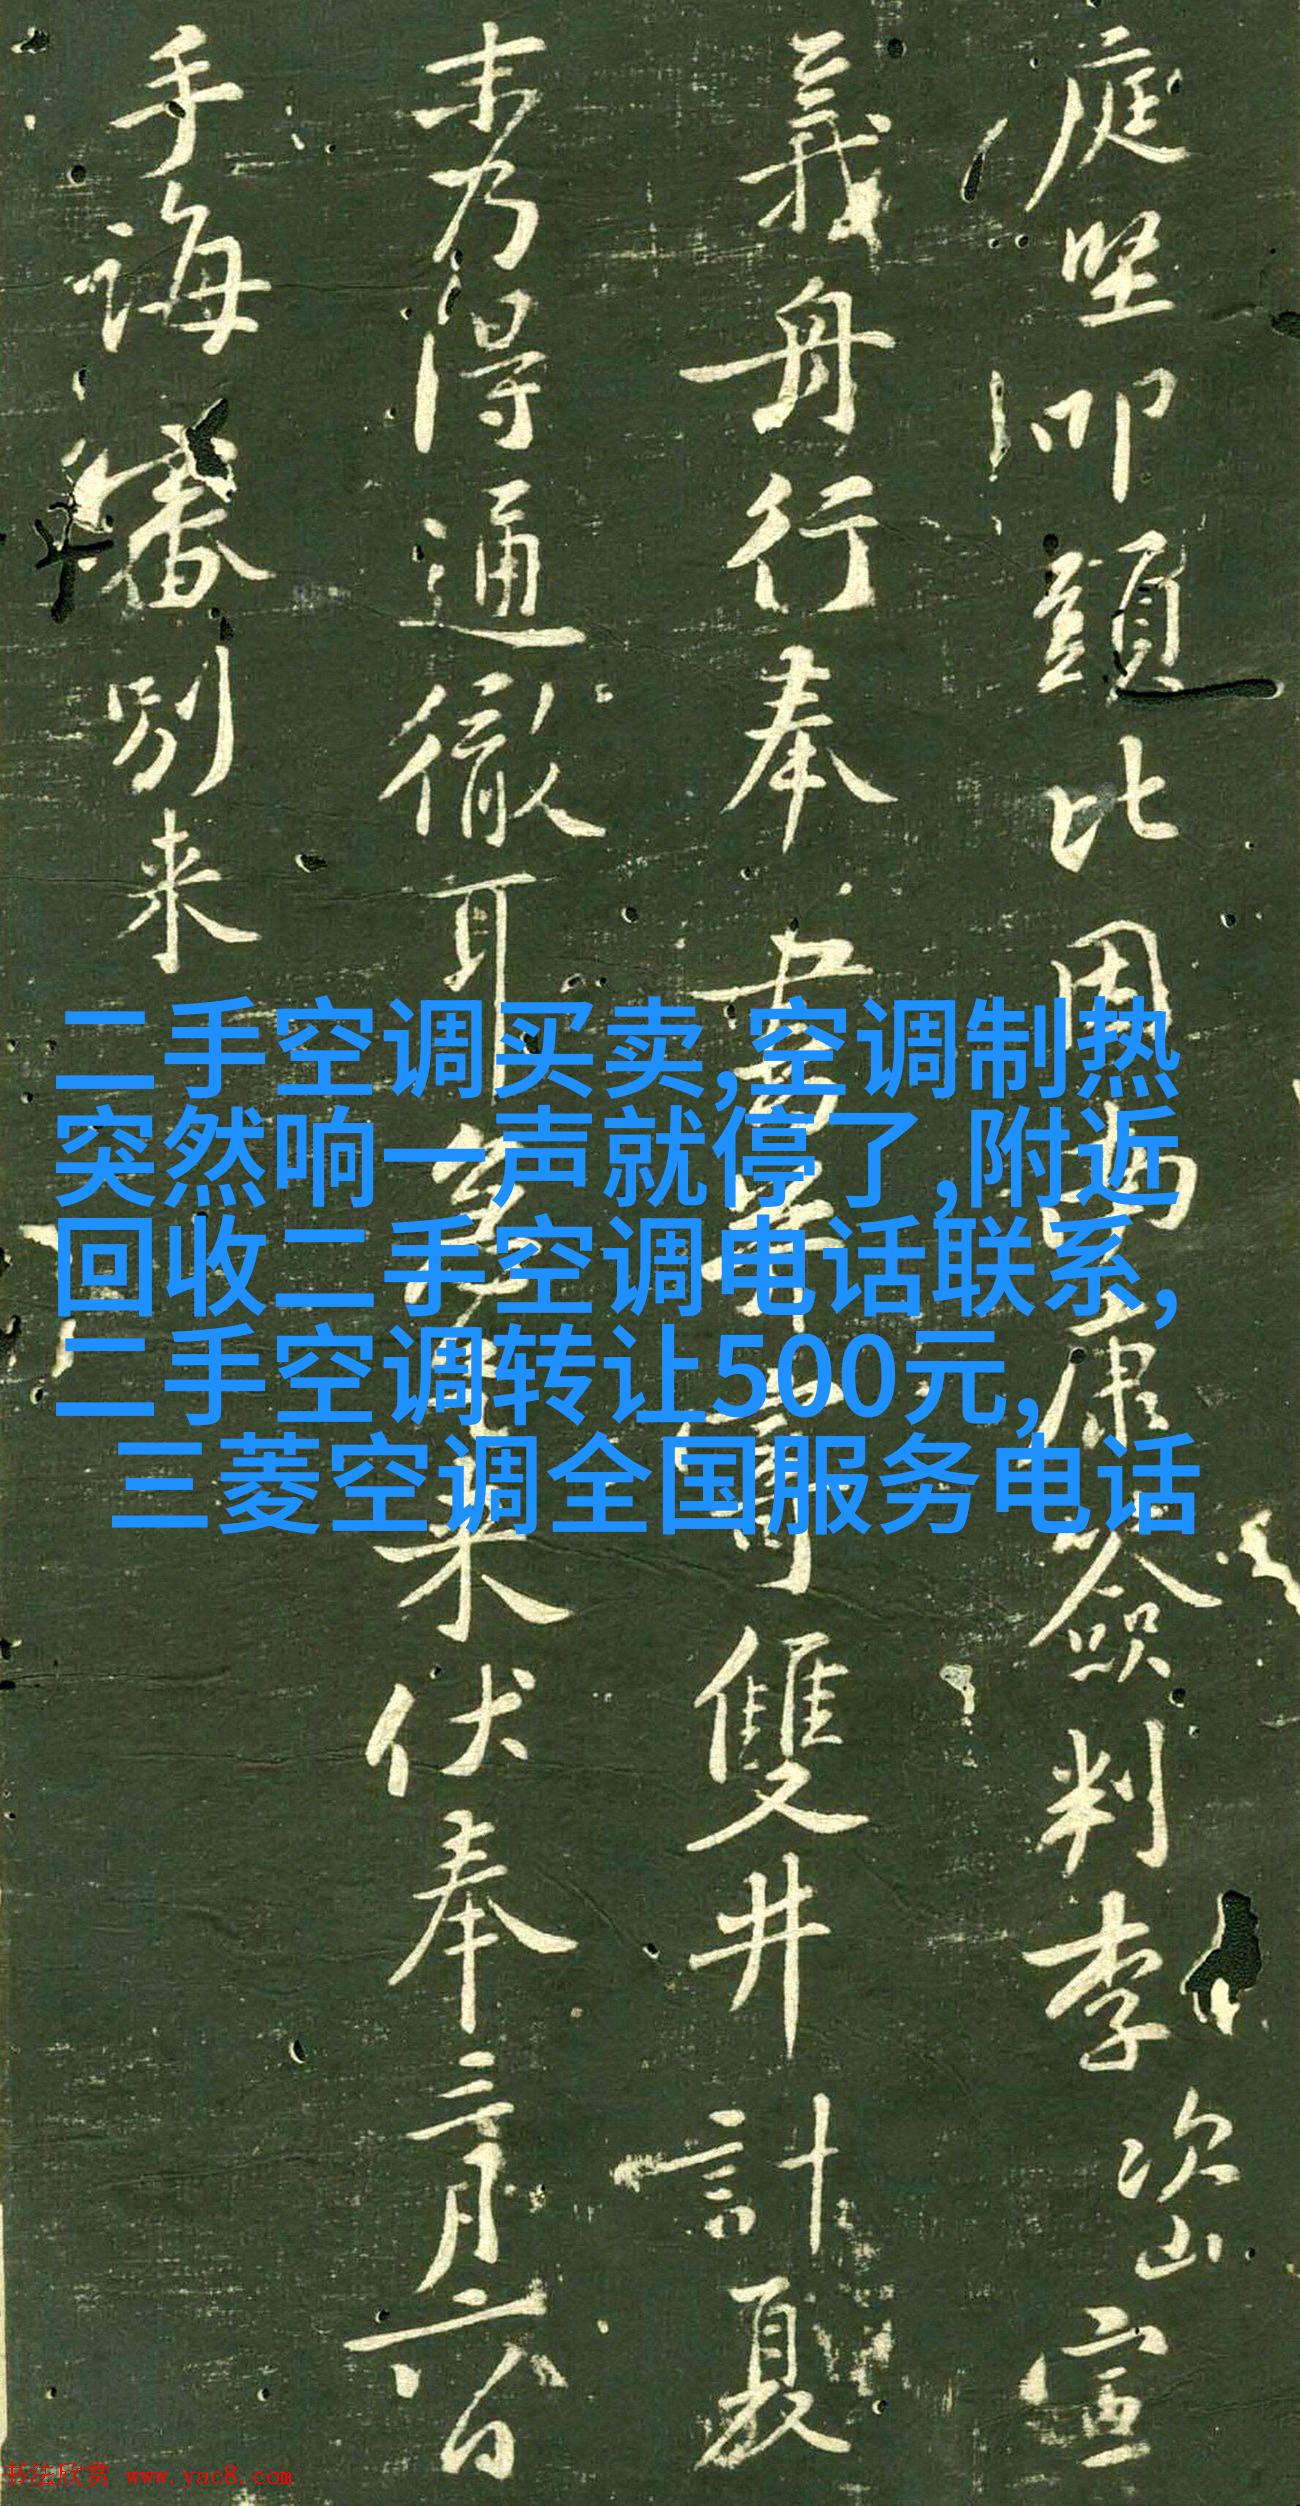 庭坚叩頭比因南康簽判李次山宣
義舟行奉書并寄雙井計夏
末乃得通徹耳 来伏奉三月六日
手誨審别来
二手空调买卖,空调制热
突然响一声就停了,附近
回收二手空调电话联系,
二手空调转让500元,
三菱空调全国服务电话
书法欣赏 www.yac8.com